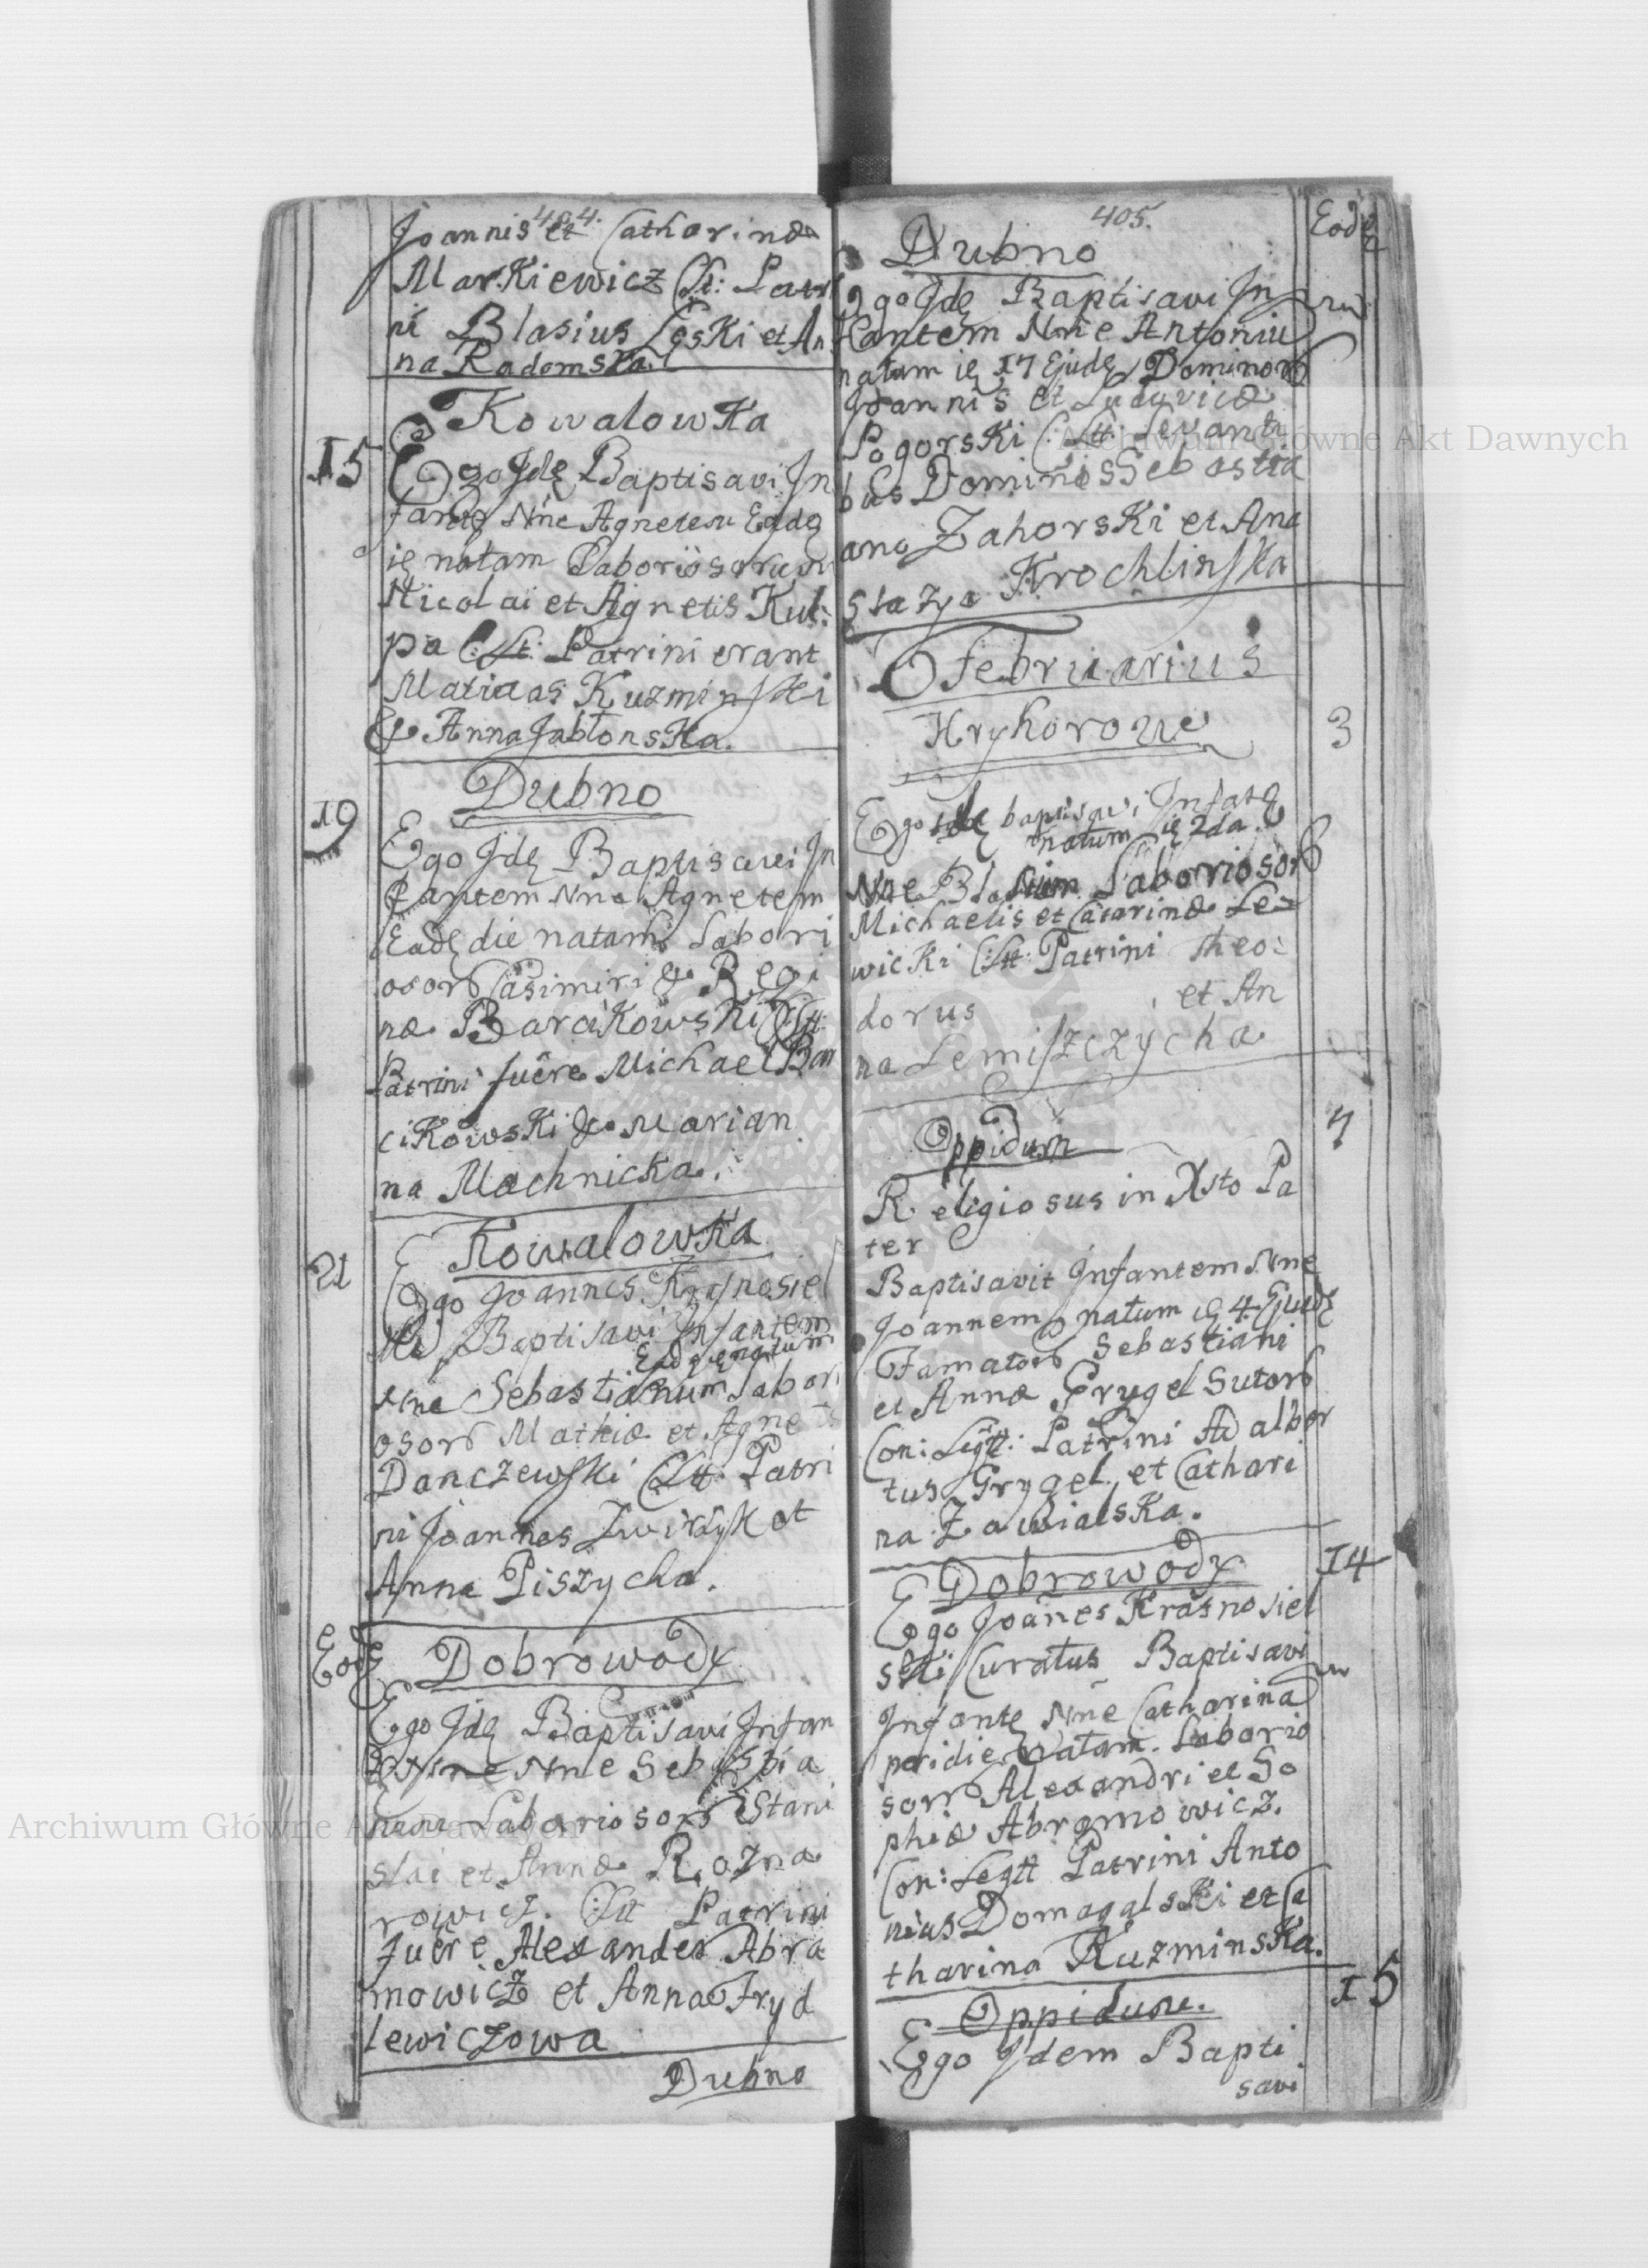 404.
Joannis et Catharinæ
Markiewicz C: Lt: Patri
ni Blasius Łęski et An
na Radomska.
Kowalowka
15
Ego Idę Baptisavi In
fantę Nne Agnetem Eadę
ię natam Laboriosorum
Nicolai et Agnetis Kul:
pa C: Lt: Patrini erant
Matiaas Kuzminski
& Anna Jabłonska.
Dubno
19
Ego Idę Baptisavi In
fantem Nne Agnetem
Eadę die natam Labori
osorū Casimiri & Regi
næ Barcikowski C: Ltt:
Patrini fuêre Michael Bar
cikowski & Marian
na Machnicka.
Kowalowka
21
Ego Joannes Krasnosiel
ski Baptisavi Infantem
Eadę ię natum
Nne Sebastianum Labori
osorū Mathiæ et Agnetis
Danczewski C: Ltt: Patri
ni Joannes Zwirzyk et
Anna Piszycha.
Eodę
Dobrowody
Ego Idę Baptisavi Infan
Nne Sebastia
num Laboriosorū Stani
slai et Annæ Rozna
rowicz. C: Ltt Patrini
fuêre Alexander Abra
mowicz et Anna Fryd
lewiczowa
Dubno
405.
Eodę
Dubno
Ego Idę Baptisavi In
fantem Nne Antoniū
natum ię 17 Ejudę Dominorū
Joannis et Ludovicæ
Pogorski C: Ltt: Levanti
bus Dominis Sebastia
ano Zahorski et Ana
stazya Krochlinska
Februarius
Hrykorowe
3
Ego Idę baptisavi Infatę
natum ię 2da
Nne Blasium Laboriosorū
Michaelis et Catarinæ Le
wicki C: Ltt: Patrini Theo:
dorus et An
na Lemiszczycha
Oppidum
7
Religiosus in Xsto Pa
ter
Baptisavit Infantem Nne
Joannem natum ię 4 Ejudę
Famatorū Sebastiani
et Annæ Grygel Sutorū
Con: Legtt: Patrini Adalber
tus Grygel et Cathari
na Zawialska.
Dobrowody
14
Ego Joanes Krasnosiel
ski Curatus Baptisavi
Infantę Nne Catharinā
pridie natam. Laborio
sorū Alexandri et So
phiæ Abramowicz.
Con: Legtt Patrini Anto
nius Domagalski et Ca
tharina Kuzminska.
15
Oppidum.
Ego Idem Bapti
savi
Archiwum Główne Akt Dawnych
Archiwum Główne Akt Dawnych